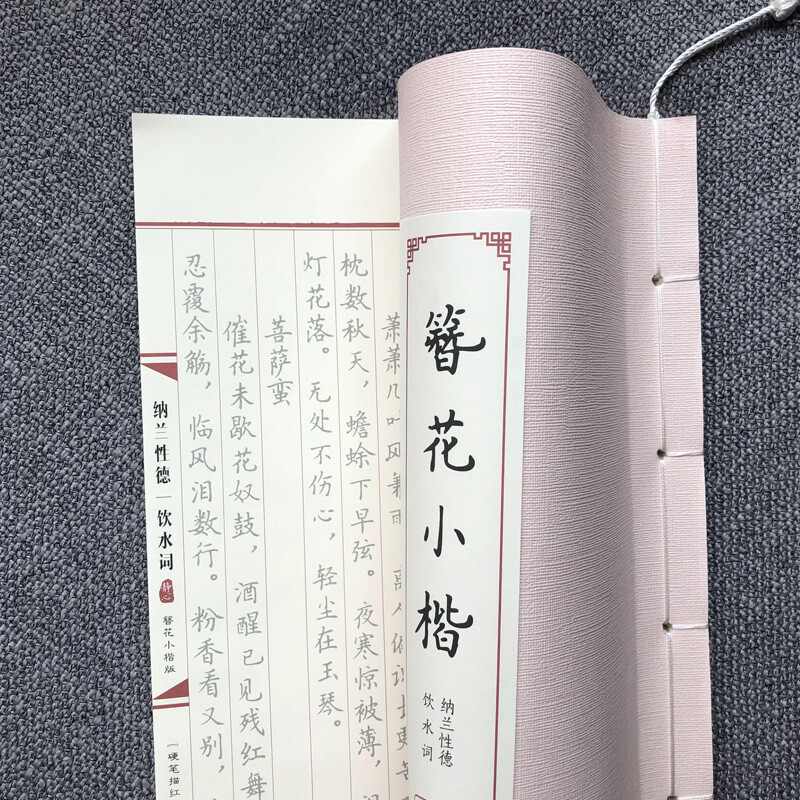 簪花小楷
纳兰性德
饮水词
萧萧几叶风兼雨
枕数秋天，蟾蜍下早弦。夜寒惊被薄，
灯花落。无处不伤心，轻尘在玉琴。
菩萨蛮
催花未歇花奴鼓，酒醒已见残红舞
忍覆余觞，临风泪数行。粉香看又别，
纳兰性德｜饮水词
静心
簪花小楷版
［硬笔描红